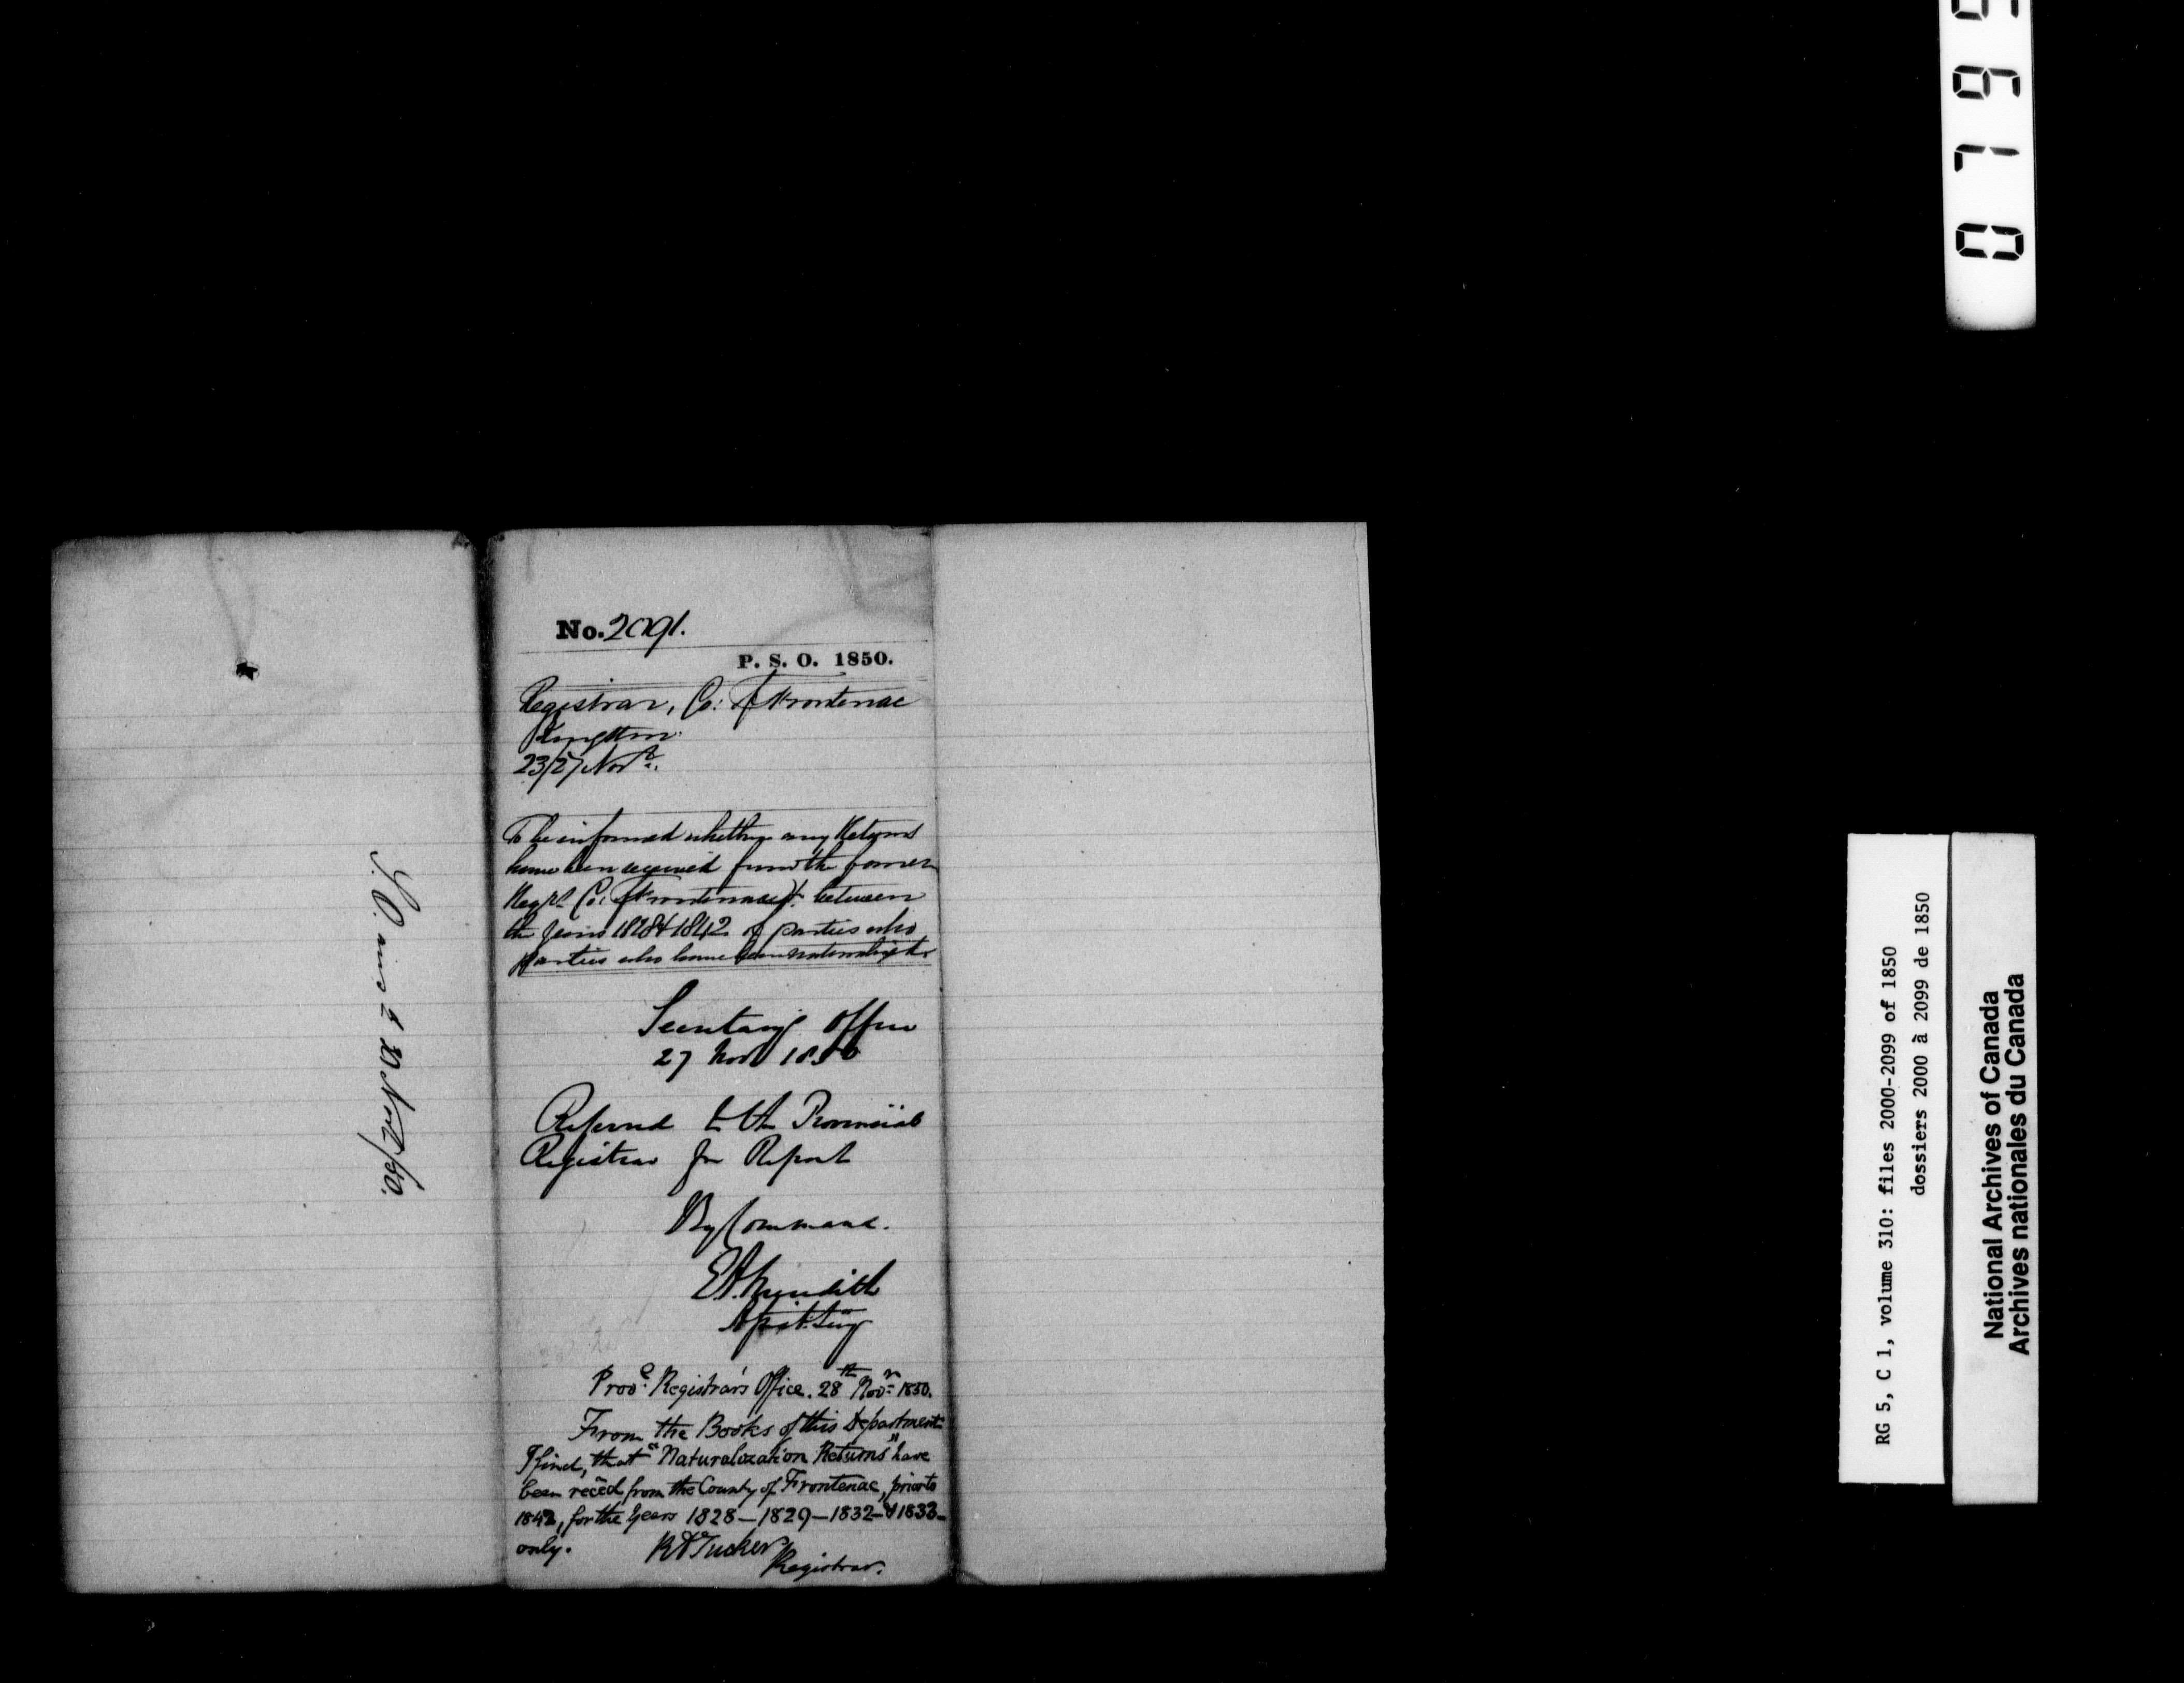 No. 2091.
P. S. O. 1850.
Registrar, Co: of Frontenac
Kingston
23/27 Novr.
To be informed whether any Returns
have been received from the former
Regr. Co: Frontenac between
the years 1828 & 1842 of parties who
parties who have been naturalized
Secretary's Office
27 Nov 1850
Referred to the Provincial
Registrar for Report
By Command.
E A Meredith
Asst. Secy
Provl. Registrar's Office. 28th Novr. 1850.
From the Books of this Department
I find, that "Naturalization Returns" have
been recēd from the County of Frontenac, prior to
1842, for the Years 1828 — 1829 — 1832 — & 1833 —
only.
R A Tucker
Registrar.
30 Nov/50.
0795
RG 5, C 1, volume 310: files 2000-2099 of 1850
dossiers 2000 à 2099 de 1850
National Archives of Canada
Archives nationales du Canada